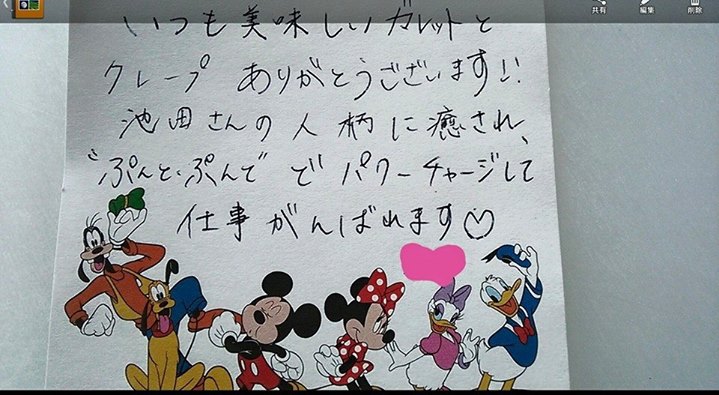 共有 編集 削除
いつも美味しいガレットと
クレープ ありがとうございます!!
池田さんの人柄に癒され、
“ぷんと・ぷんで で パワーチャージして
仕事がんばれます♡